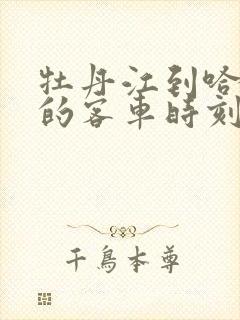 牡丹江到哈
的客車時刻
千鳥本尊